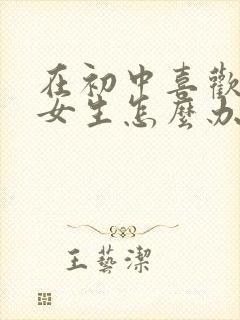 在初中喜歡
女生怎麼办
王藝潔